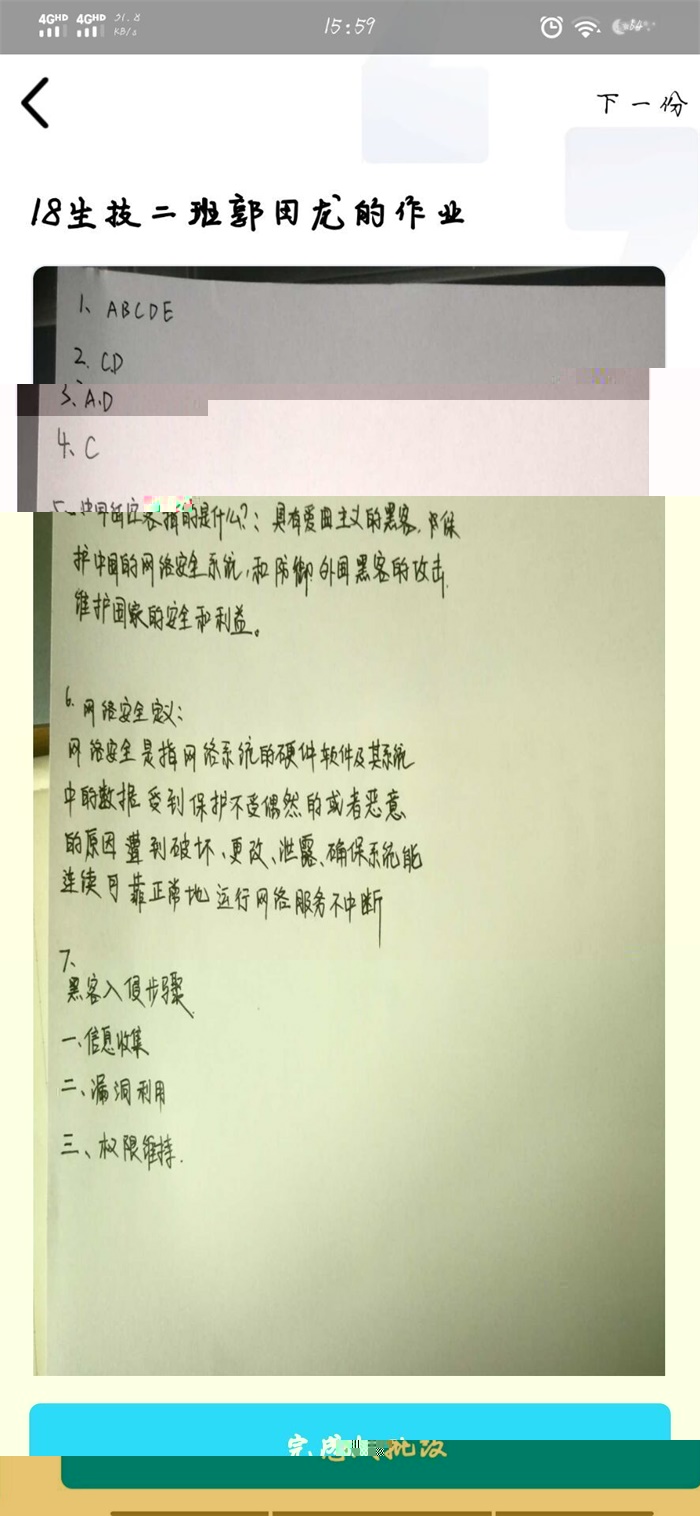 4GHD 4GHD 21.8 KB/s 15:59
下一份
18生技二班郭田龙的作业
1、ABCDE
2. CD
3、A.D
4、C
指的是什么?:具有爱国主义的黑客.
护中国的网络安全系统,和防御外国黑客的攻击.
维护国家的安全和利益。
6. 网络安全定义:
网络安全是指网络系统的硬件软件及其系统
中的数据受到保护不受偶然的或者恶意
的原因遭到破坏、更改、泄露、确保系统能
连续可靠正常地运行网络服务不中断
7、
黑客入侵步骤
一、信息收集
二、漏洞利用
三、权限维持.
完成 批改